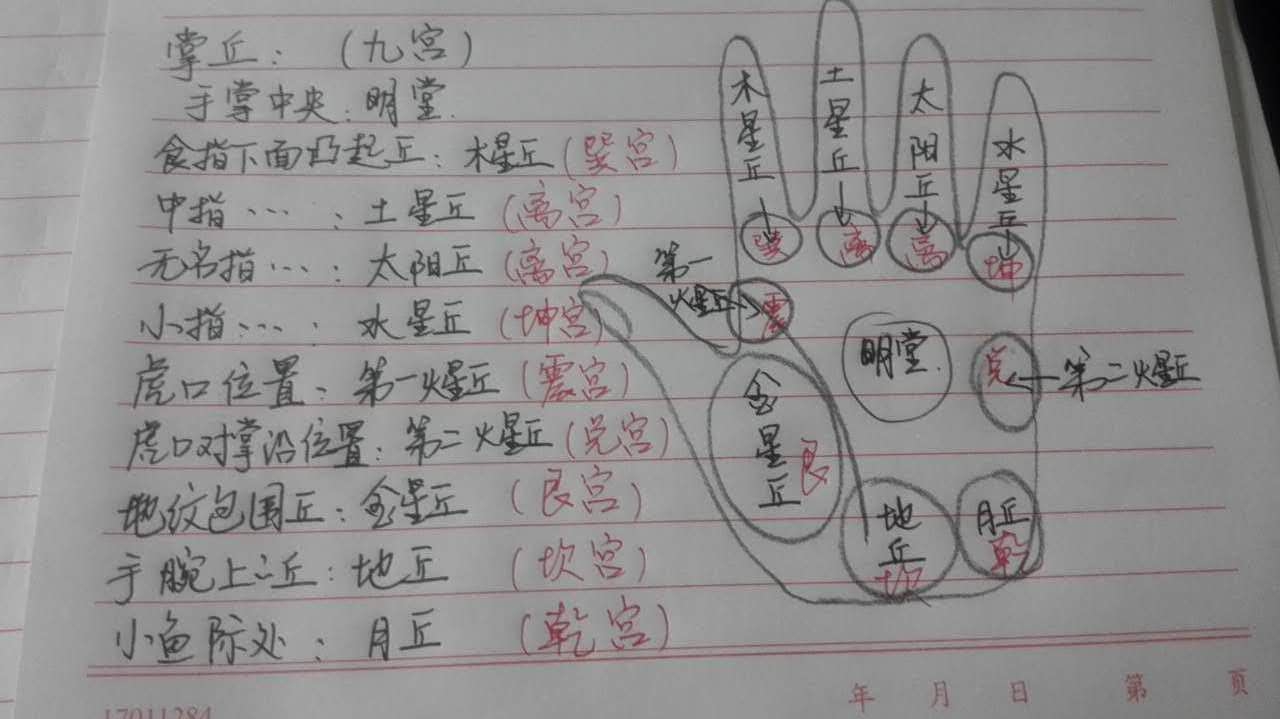 掌丘：（九宫）
手掌中央：明堂.
食指下面凸起丘：木星丘（巽宫）
中指…：土星丘（离宫）
无名指…：太阳丘（离宫）
小指…：水星丘（坤宫）
虎口位置：第一火星丘（震宫）
虎口对掌沿位置：第二火星丘（兑宫）
地纹包围丘：金星丘（艮宫）
手腕上之丘：地丘（坎宫）
小鱼际处：月丘（乾宫）
木星丘→巽
土星丘→离
太阳丘→离
水星丘→坤
第一火星丘→震
明堂.
兑←第二火星丘
金星丘 艮
地丘 坎
月丘 乾
年 月 日 第 页
17011284